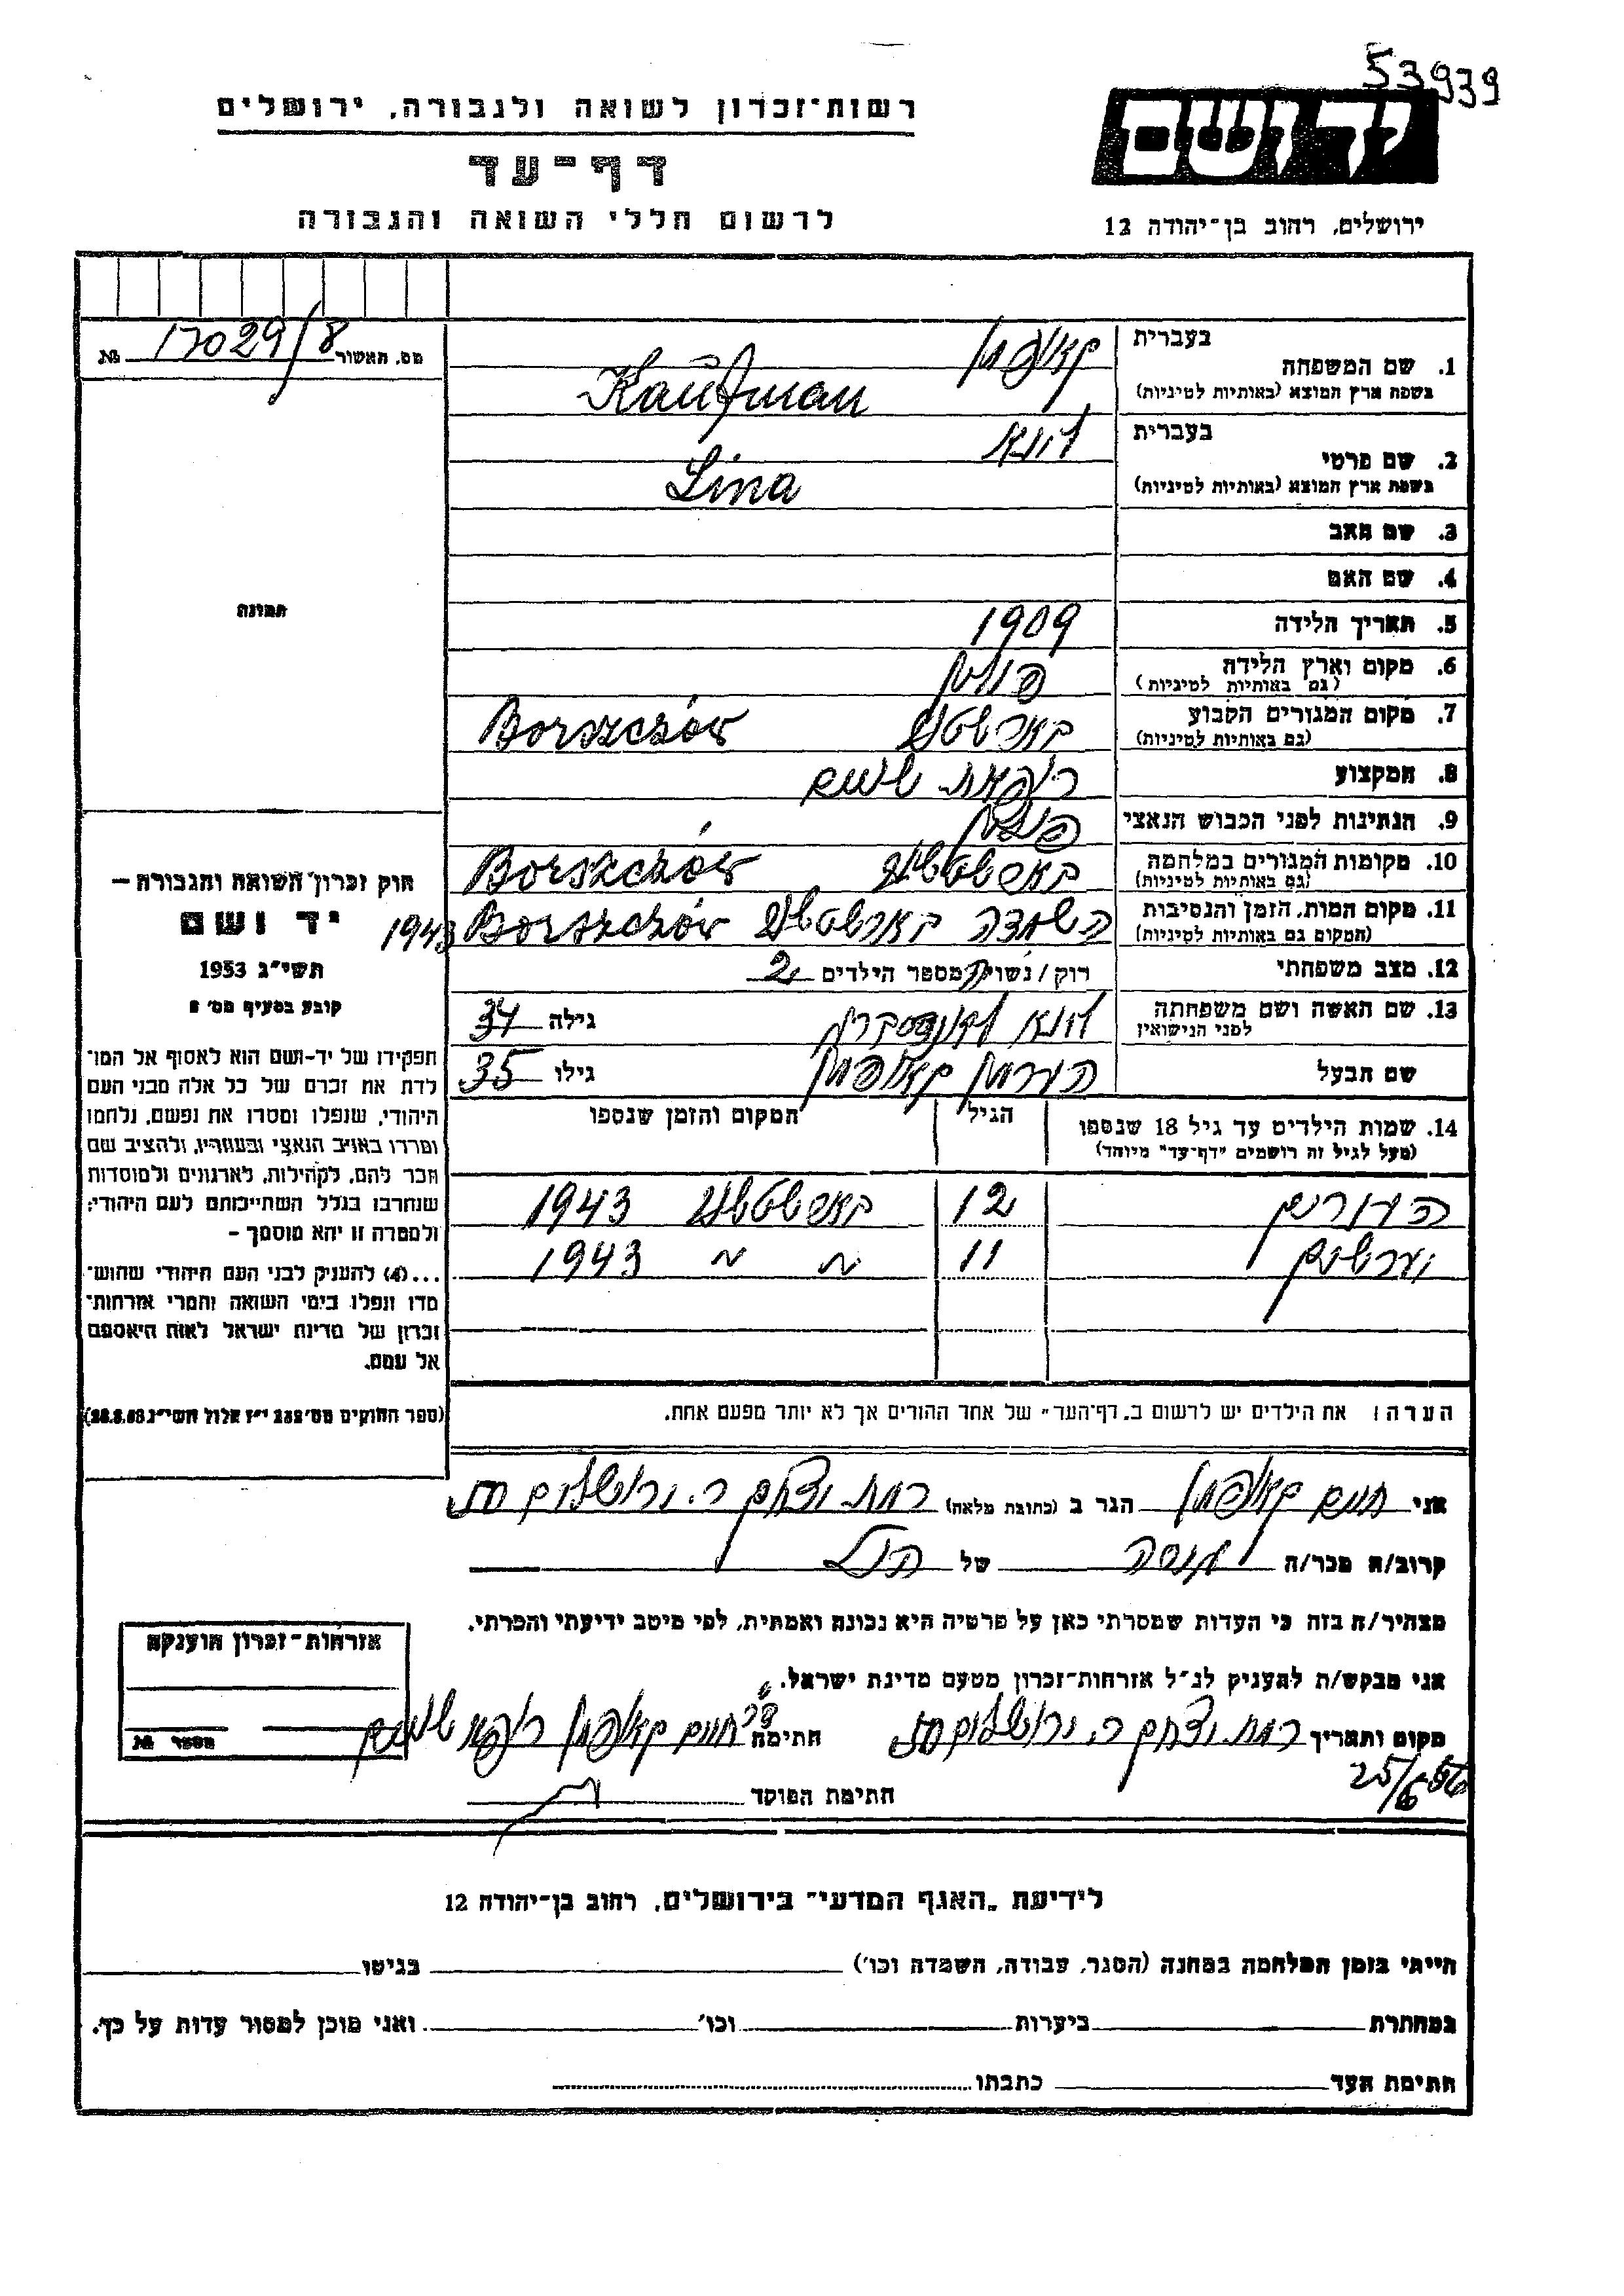 53939
רשות־זכרון לשואה ולגבורה, ירושלים
יד ושם
דף־עד
לרשום חללי השואה והגבורה
ירושלים, רחוב בן־יהודה 12
מס. האשור 17029/8 №
בעברית קאופמן
1. שם המשפחה
בשפת ארץ המוצא (באותיות לטיניות) Kaufman
בעברית לינא
2. שם פרטי
בשפת ארץ המוצא (באותיות לטיניות) Lina
3. שם האב
4. שם האם
5. תאריך הלידה 1909
6. מקום וארץ הלידה פולין
(גם באותיות לטיניות)
7. מקום המגורים הקבוע Borszczów
(גם באותיות לטיניות)
8. המקצוע רופאת שינים
9. הנתינות לפני הכבוש הנאצי פולין
10. מקומות המגורים במלחמה Borszczów
(גם באותיות לטיניות)
11. מקום המות, הזמן והנסיבות Borszczów 1943
(המקום גם באותיות לטיניות)
12. מצב משפחתי רוק/נשוי מספר הילדים 2
13. שם האשה ושם משפחתה לינא גילה 34
לפני הנישואין
שם הבעל הערמן קאופמן גילו 35
14. שמות הילדים עד גיל 18 שנספו הגיל המקום והזמן שנספו
(מעל לגיל זה רושמים "דף־עד" מיוחד)
12 1943
11 " " 1943
הערה: את הילדים יש לרשום ב„דף־העד" של אחד ההורים אך לא יותר מפעם אחת.
תמונה
חוק זכרון השואה והגבורה —
יד ושם
תשי"ג 1953
קובע בסעיף מס' 2
תפקידו של יד־ושם הוא לאסוף אל המו־
לדת את זכרם של כל אלה מבני העם
היהודי, שנפלו ומסרו את נפשם, נלחמו
ומרדו באויב הנאצי ובעוזריו, ולהציב שם
וזכר להם, לקהילות, לארגונים ולמוסדות
שנחרבו בגלל השתייכותם לעם היהודי;
ולמטרה זו יהא מוסמך —
...(4) להעניק לבני העם היהודי שהוש־
מדו ונפלו בימי השואה והמרי אזרחות־
זכרון של מדינת ישראל לאות היאספם
אל עמם.
(ספר החוקים מס' 132 י"ז אלול תשי"ג 28.8.53)
אני חיים קאופמן הגר ב (כתובת מלאה) רמת יצחק ר. ירושלים
קרוב/ה מכר/ה של הנ"ל
מצהיר/ה בזה כי העדות שמסרתי כאן על פרטיה היא נכונה ואמתית, לפי מיטב ידיעתי והכרתי.
אני מבקש/ת להעניק לנ"ל אזרחות־זכרון מטעם מדינת ישראל.
מקום ותאריך רמת יצחק ר. ירושלים חתימה ד"ר חיים קאופמן רופא שינים
25/6 56
חתימת הפוקד
אזרחות־זכרון הוענקה
מספר №
לידיעת „האגף המדעי" בירושלים, רחוב בן־יהודה 12
הייתי בזמן המלחמה במחנה (הסגר, עבודה, השמדה וכו') בגיטו
במחתרת ביערות וכו' ואני מוכן למסור עדות על כך.
חתימת העד כתבתו